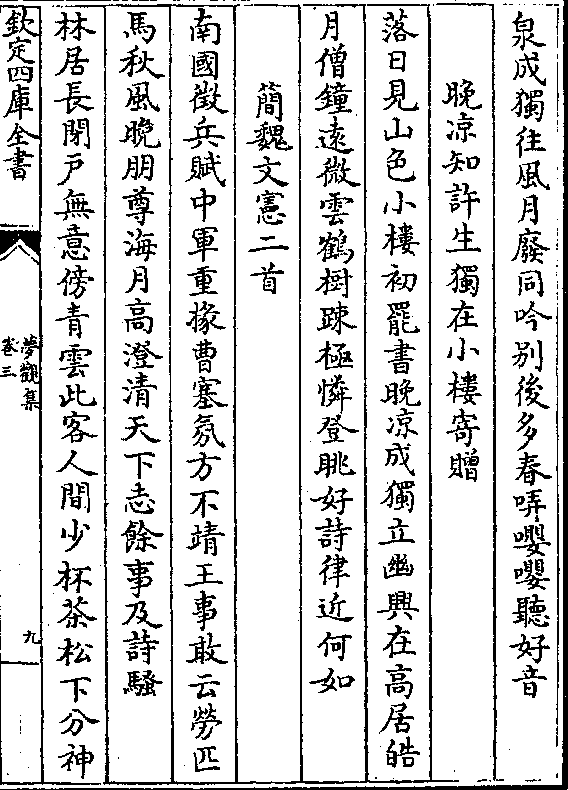 泉成獨往風月廢同吟别後多春哢嚶嚶聽好音
晚凉知許生獨在小樓寄贈
落日見山色小樓初罷書晚凉成獨立幽興在高居皓
月僧鐘遠微雲鶴樹踈極憐登眺好詩律近何如
簡魏文憲二首
南國徴兵賦中軍重掾曹塞氛方不靖王事敢云勞匹
馬秋風晚朋尊海月高澄清天下志餘事及詩騷
林居長閉戸無意傍青雲此客人間少杯茶松下分神
欽定四庫全書
夢觀集
卷三
九